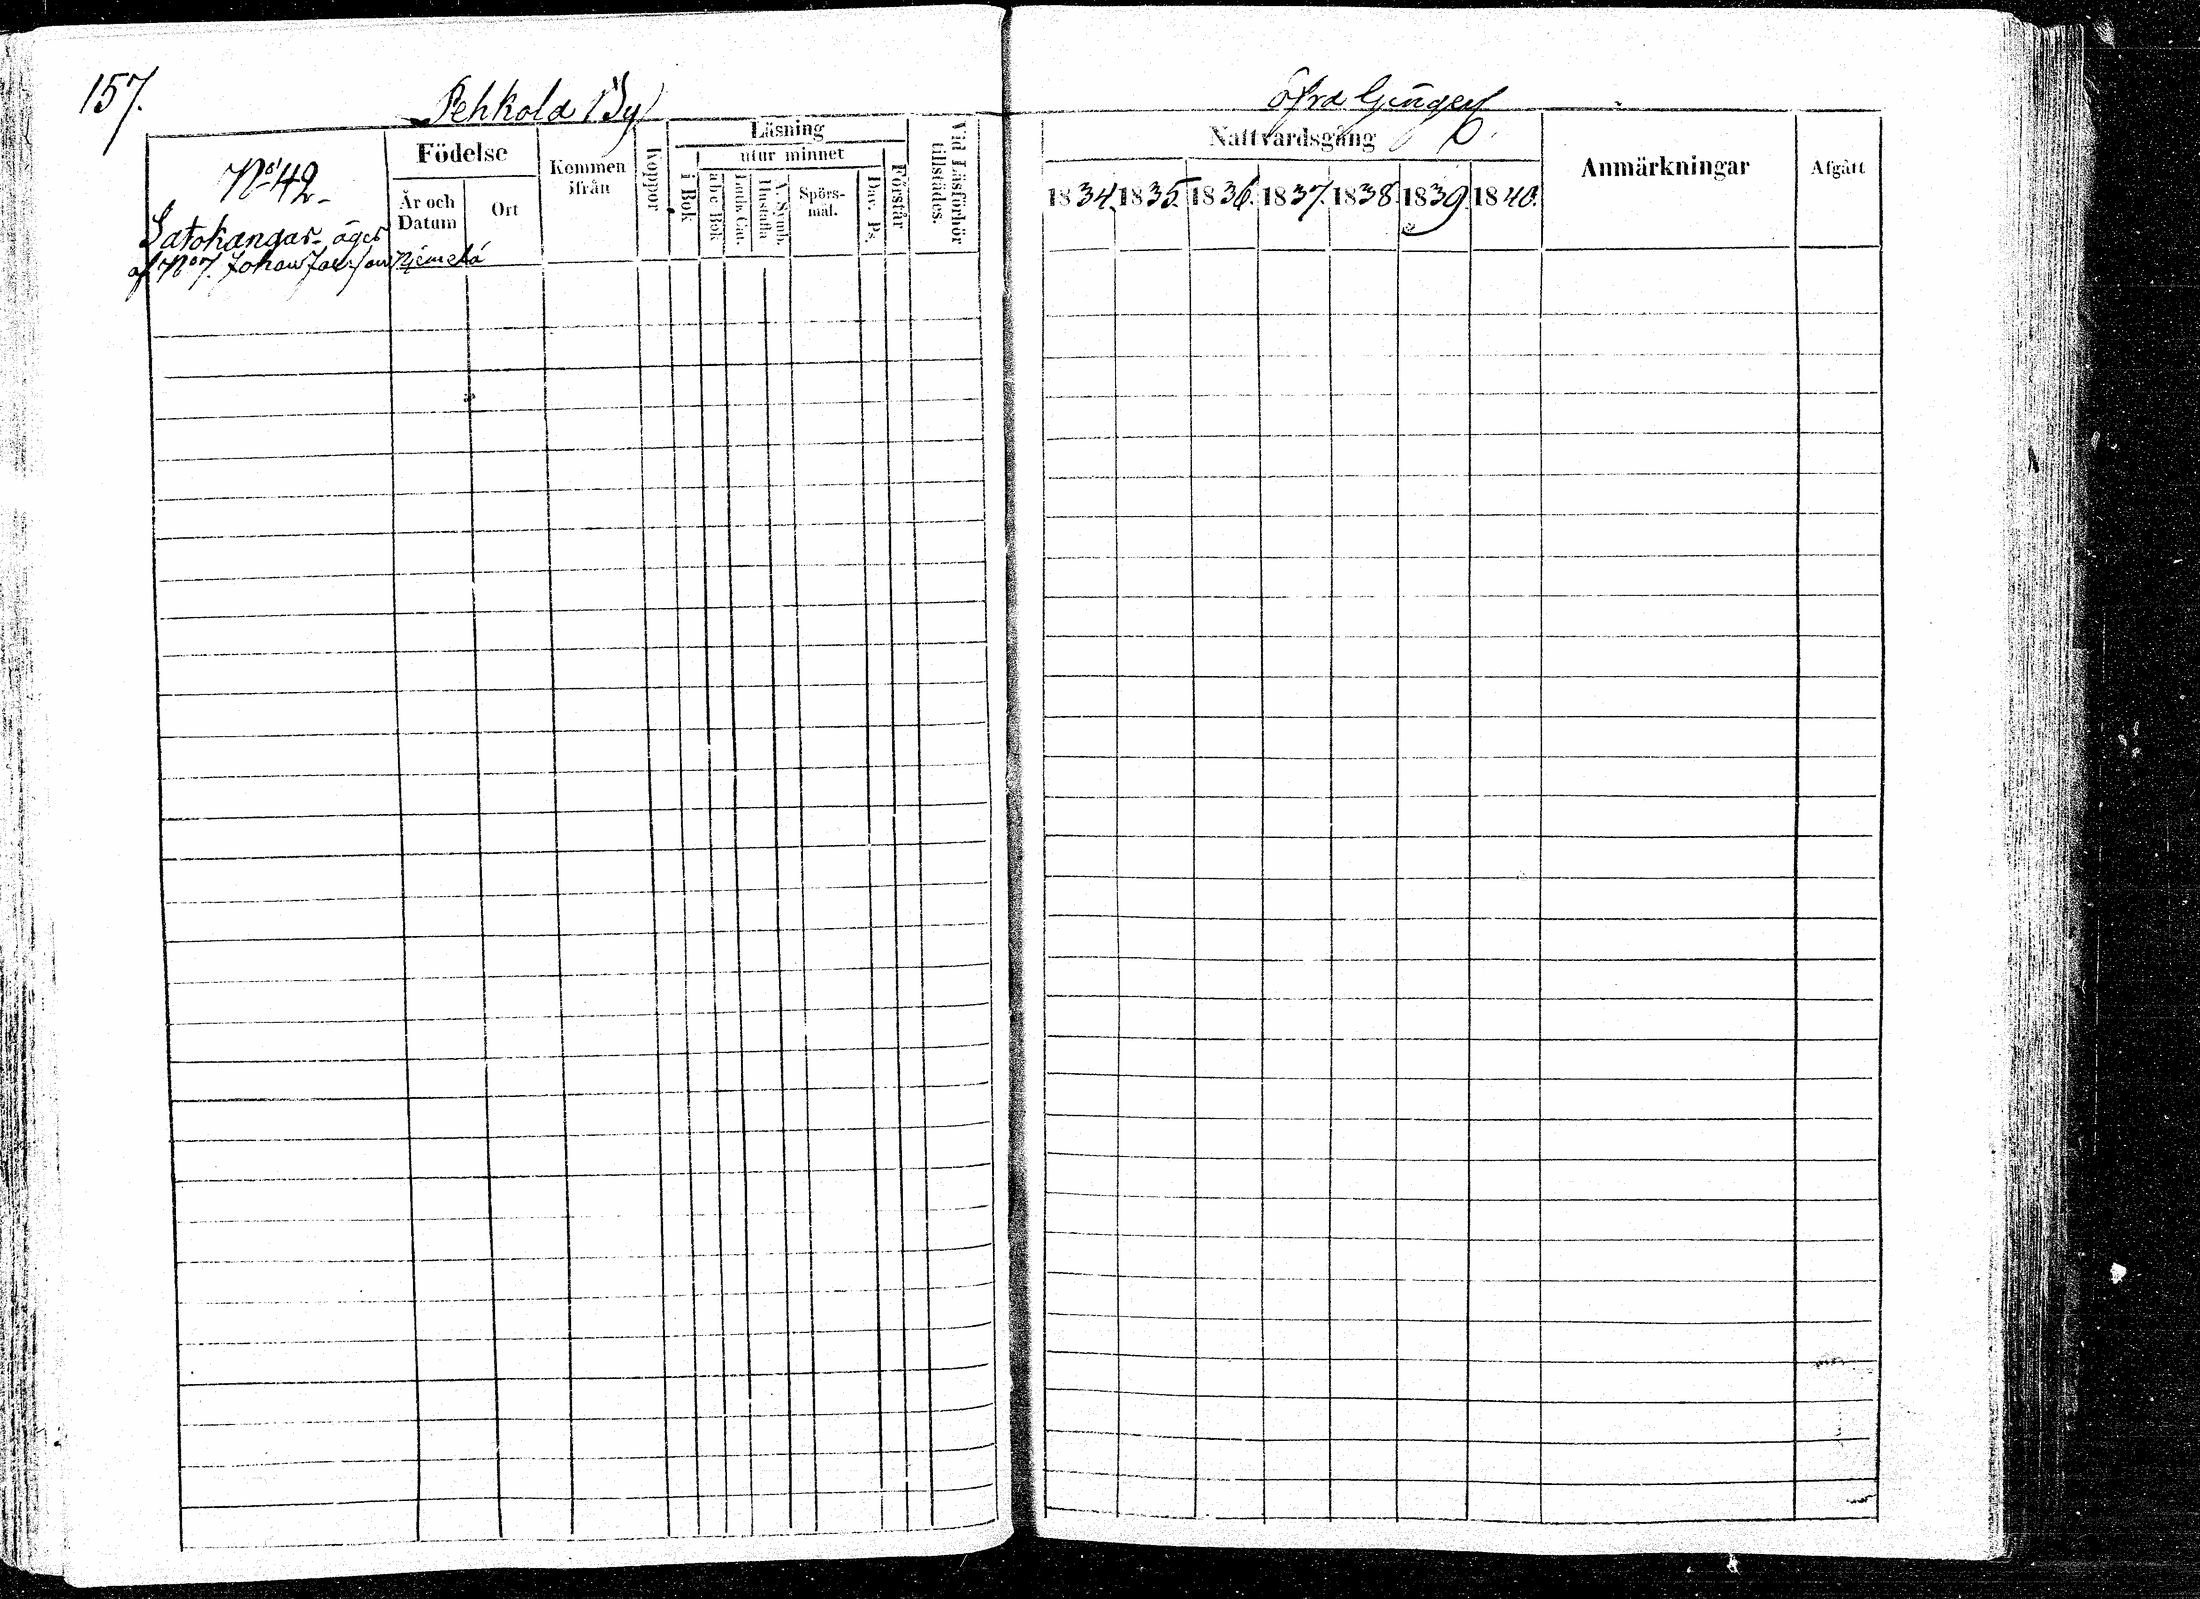 157.
Pehkola By
Öfra
Nº 42
Satokangas äges
af Nº 7. Johan
Födelse
År och Datum
Ort
Kommen ifrån
Koppor
Läsning
i Bok
utur minnet
abc Bok
Luth. Cat.
Hustafla
A. Symb.
Spörs-mål.
Dav. Ps.
Förstår
Vid Läsförhör tillstädes.
Nattvardsgång
1834. 1835. 1836. 1837. 1838. 1839. 1840.
Anmärkningar
Afgått